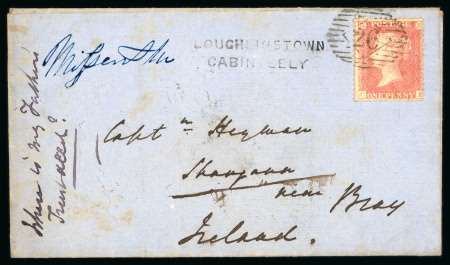 Missent to
LOUGHLINSTOWN
CABINTEELY
POSTAGE
ONE PENNY
Capt n Heyman
Shangana
near Bray
Ireland.
Where is my Father's
Trust deed?